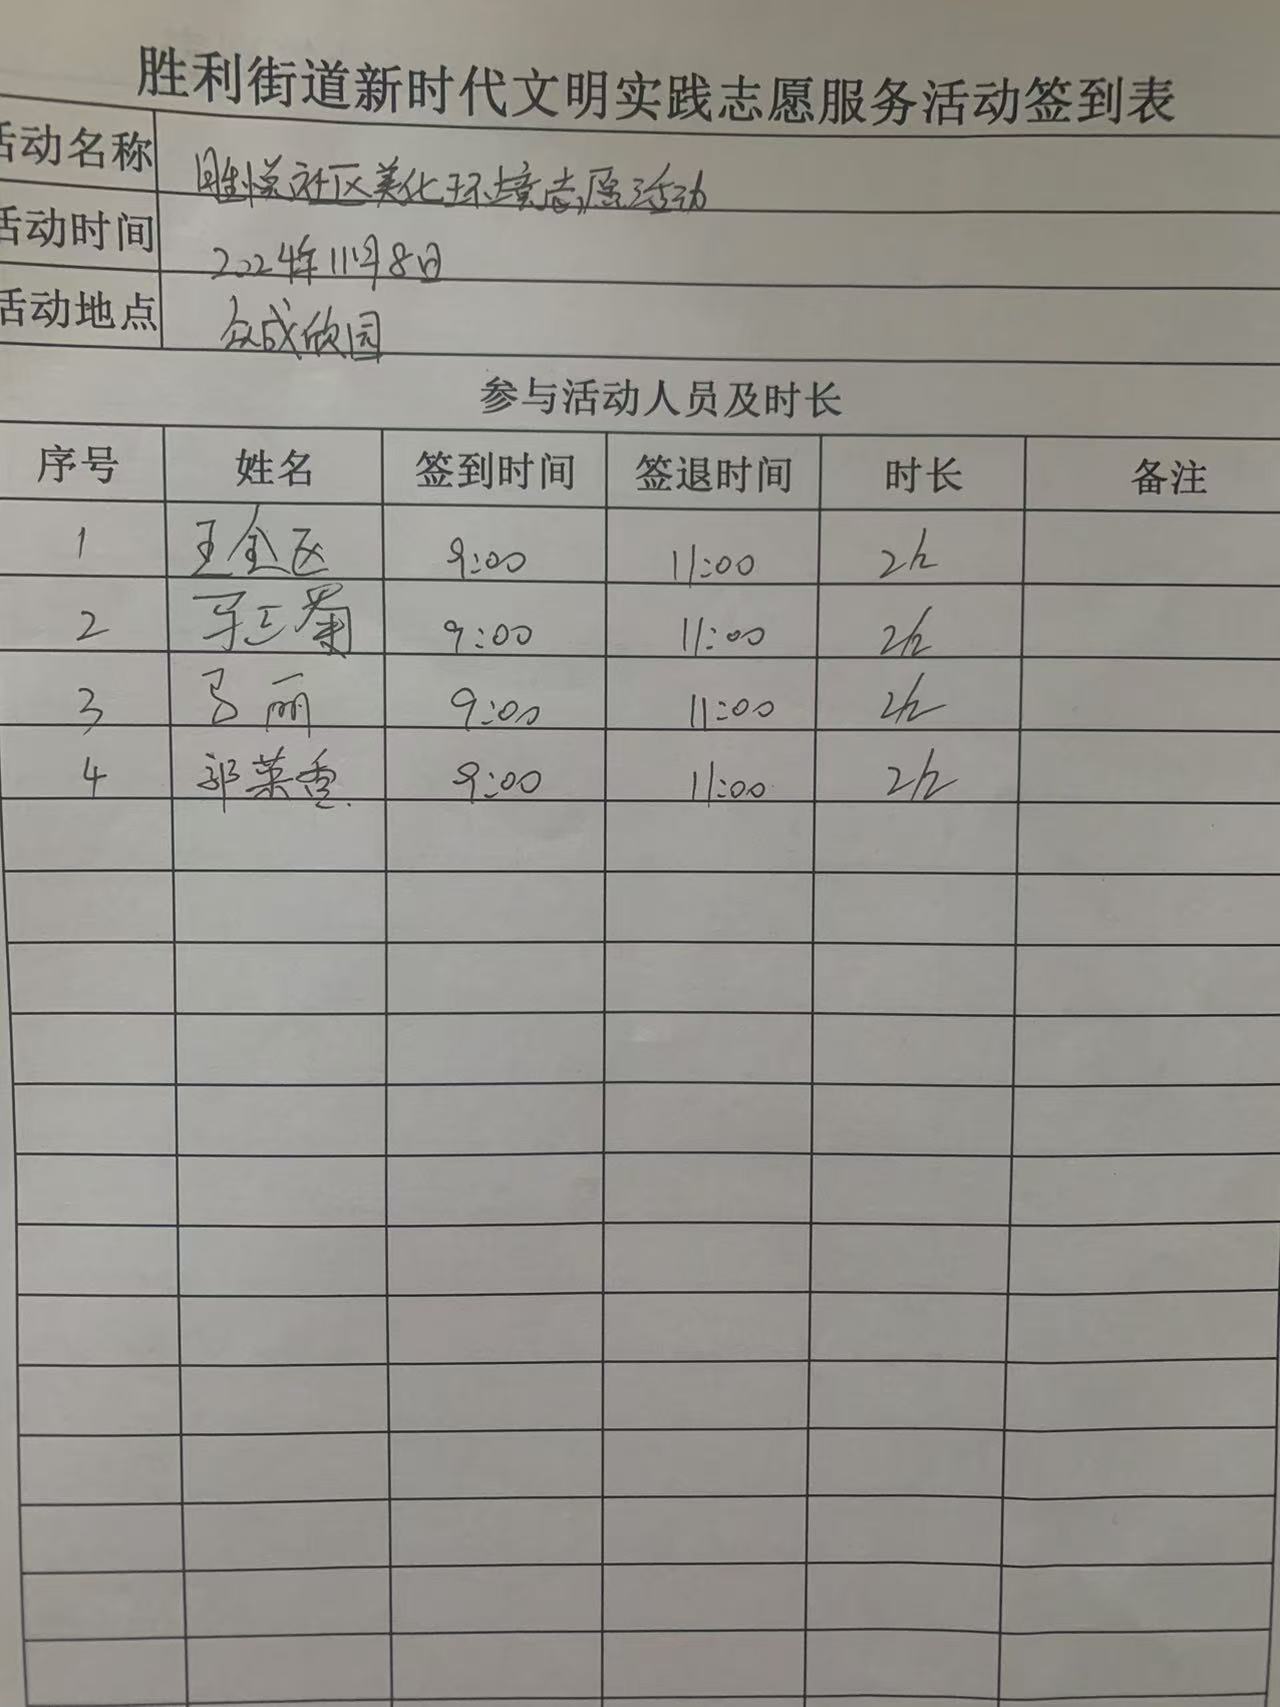 胜利街道新时代文明实践志愿服务活动签到表
活动名称 胜悦社区美化环境志愿活动
活动时间 2024年11月8日
活动地点 众成欣园
参与活动人员及时长
序号 姓名 签到时间 签退时间 时长 备注
1 王全 9:00 11:00 2h
2 菊 9:00 11:00 2h
3 马丽 9:00 11:00 2h
4 郭菜香 9:00 11:00 2h